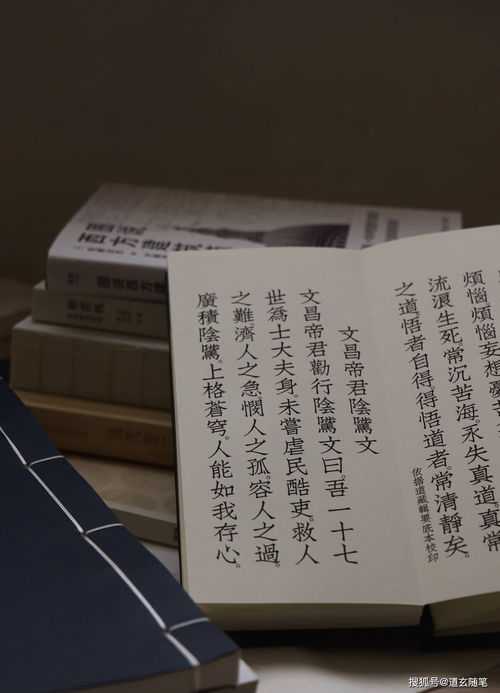 煩惱煩惱妄想憂
流浪生死常沉苦海。永失真道。真常
之道。悟者自得。得悟道者。常清靜矣。
依據道藏輯要底本校印
文昌帝君陰騭文
文昌帝君勸行陰騭文曰。吾一十七
世為士大夫身。未嘗虐民酷吏。救人
之難。濟人之急。憫人之孤。容人之過。
廣積陰騭。上格蒼穹。人能如我存心。
搜狐号@道玄随笔